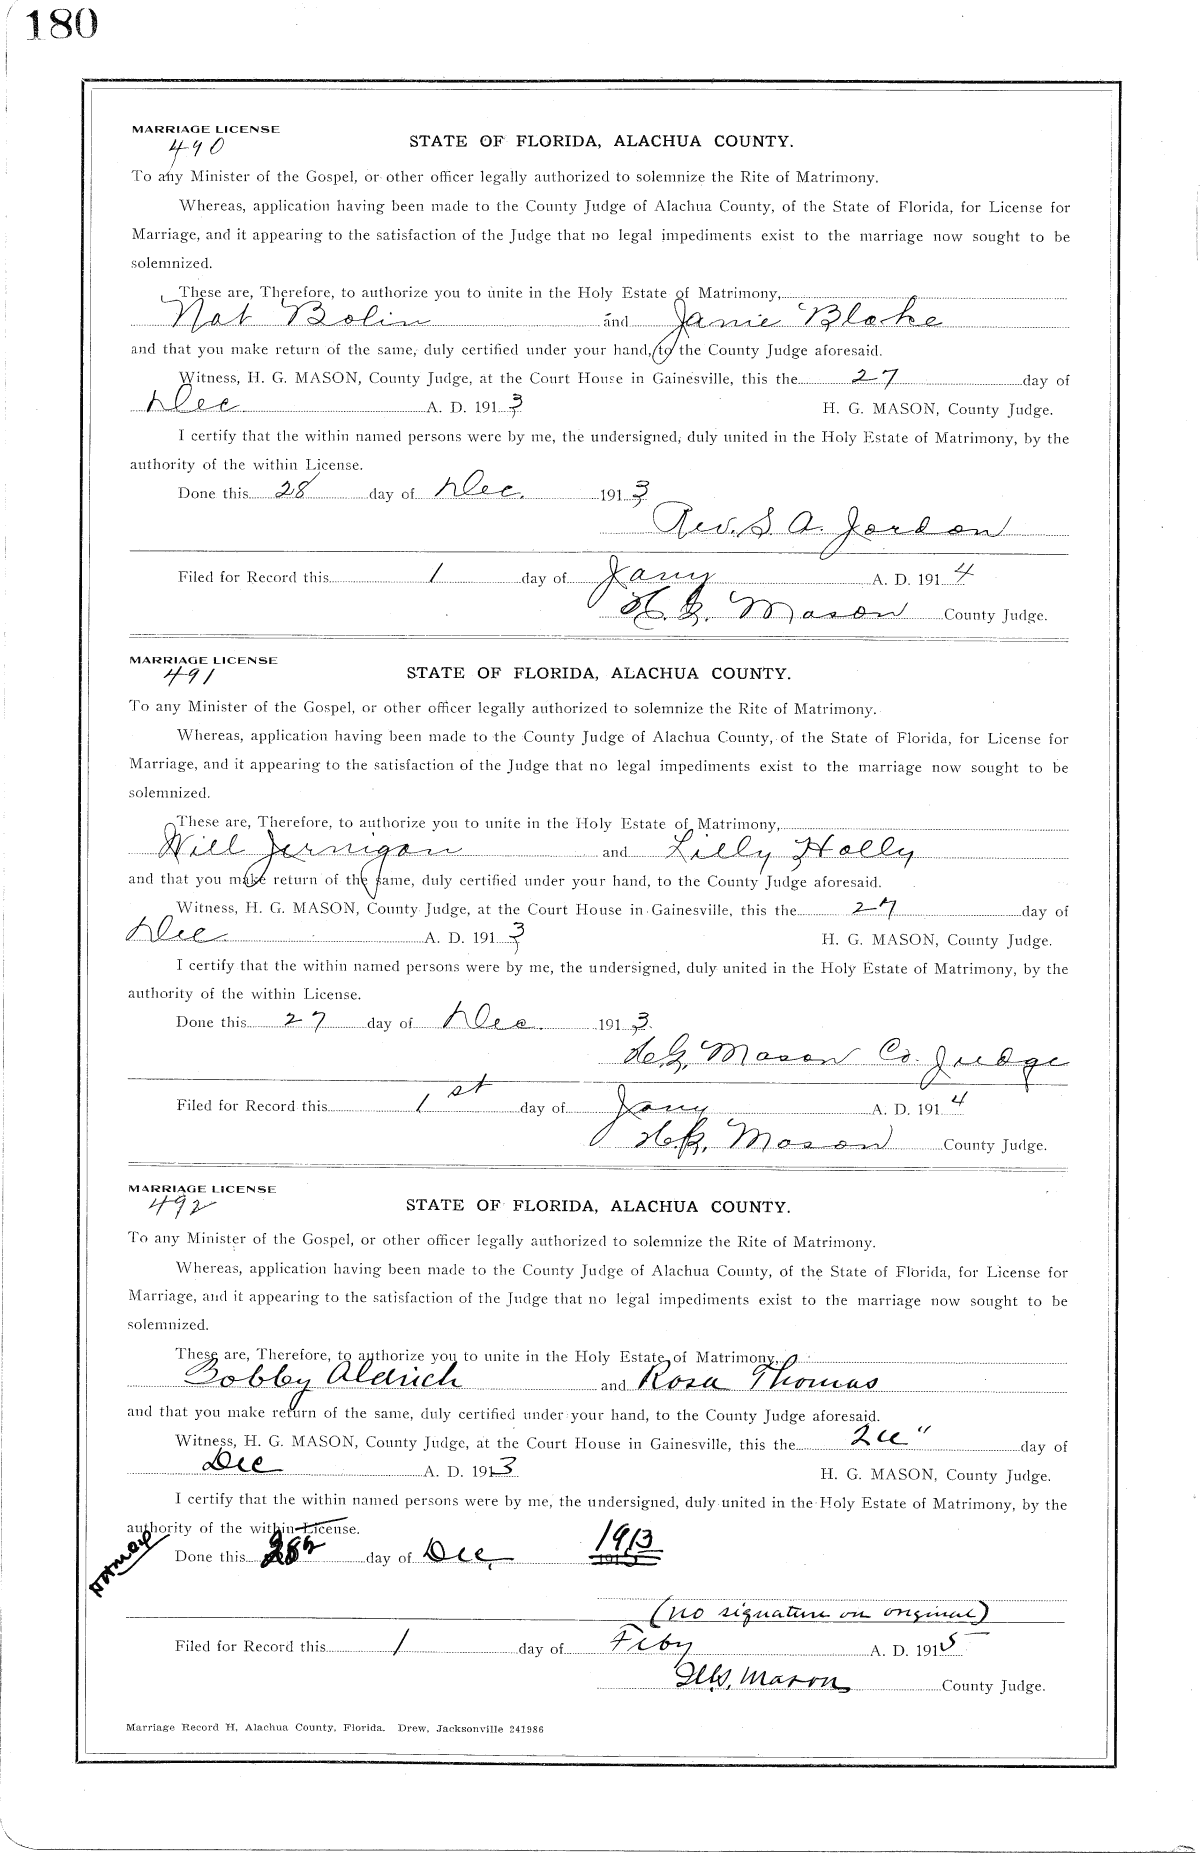 180
MARRIAGE LICENSE
490
STATE OF FLORIDA, ALACHUA COUNTY.
To any Minister of the Gospel, or other officer legally authorized to solemnize the Rite of Matrimony.
Whereas, application having been made to the County Judge of Alachua County, of the State of Florida, for License for
Marriage, and it appearing to the satisfaction of the Judge that no legal impediments exist to the marriage now sought to be
solemnized.
These are, Therefore, to authorize you to unite in the Holy Estate of Matrimony,
Nat Bolin and Janie Blake
and that you make return of the same, duly certified under your hand, to the County Judge aforesaid.
Witness, H. G. MASON, County Judge, at the Court House in Gainesville, this the 27 day of
Dec A. D. 1913 H. G. MASON, County Judge.
I certify that the within named persons were by me, the undersigned, duly united in the Holy Estate of Matrimony, by the
authority of the within License.
Done this 28 day of Dec. 1913
Rev. S. A. Jordon
Filed for Record this 1 day of Jany A. D. 1914
H. G. Mason County Judge.
MARRIAGE LICENSE
491
STATE OF FLORIDA, ALACHUA COUNTY.
To any Minister of the Gospel, or other officer legally authorized to solemnize the Rite of Matrimony.
Whereas, application having been made to the County Judge of Alachua County, of the State of Florida, for License for
Marriage, and it appearing to the satisfaction of the Judge that no legal impediments exist to the marriage now sought to be
solemnized.
These are, Therefore, to authorize you to unite in the Holy Estate of Matrimony,
Will Jernigan and Lilly Holly
and that you make return of the same, duly certified under your hand, to the County Judge aforesaid.
Witness, H. G. MASON, County Judge, at the Court House in Gainesville, this the 27 day of
Dec. A. D. 1913 H. G. MASON, County Judge.
I certify that the within named persons were by me, the undersigned, duly united in the Holy Estate of Matrimony, by the
authority of the within License.
Done this 27 day of Dec. 1913.
H. G. Mason Co. Judge
Filed for Record this 1st day of Jany A. D. 1914
H. G. Mason County Judge.
MARRIAGE LICENSE
492
STATE OF FLORIDA, ALACHUA COUNTY.
To any Minister of the Gospel, or other officer legally authorized to solemnize the Rite of Matrimony.
Whereas, application having been made to the County Judge of Alachua County, of the State of Florida, for License for
Marriage, and it appearing to the satisfaction of the Judge that no legal impediments exist to the marriage now sought to be
solemnized.
These are, Therefore, to authorize you to unite in the Holy Estate of Matrimony,
Bobby Aldrich and Rosa Thomas
and that you make return of the same, duly certified under your hand, to the County Judge aforesaid.
Witness, H. G. MASON, County Judge, at the Court House in Gainesville, this the day of
Dec A. D. 1913 H. G. MASON, County Judge.
I certify that the within named persons were by me, the undersigned, duly united in the Holy Estate of Matrimony, by the
authority of the within License.
Done this day of Dec, 1913
(no signature on original)
Filed for Record this 1 day of Feby A. D. 1915
H. G. Mason County Judge.
Marriage Record H, Alachua County, Florida. Drew, Jacksonville 241986